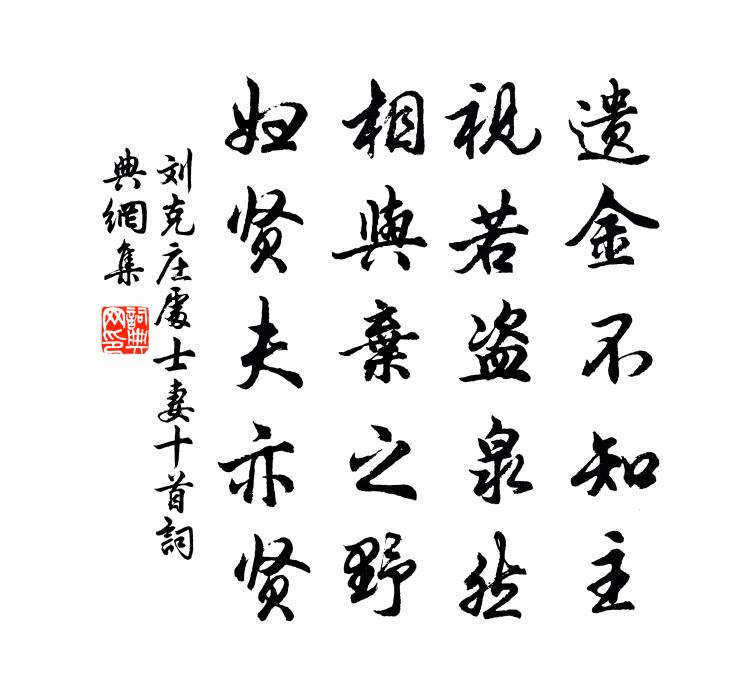 遗金不知主
视若盗泉然
相與棄之野
妇贤夫亦贤
刘克庄處士妻十首詞
典網集
詞典
网印